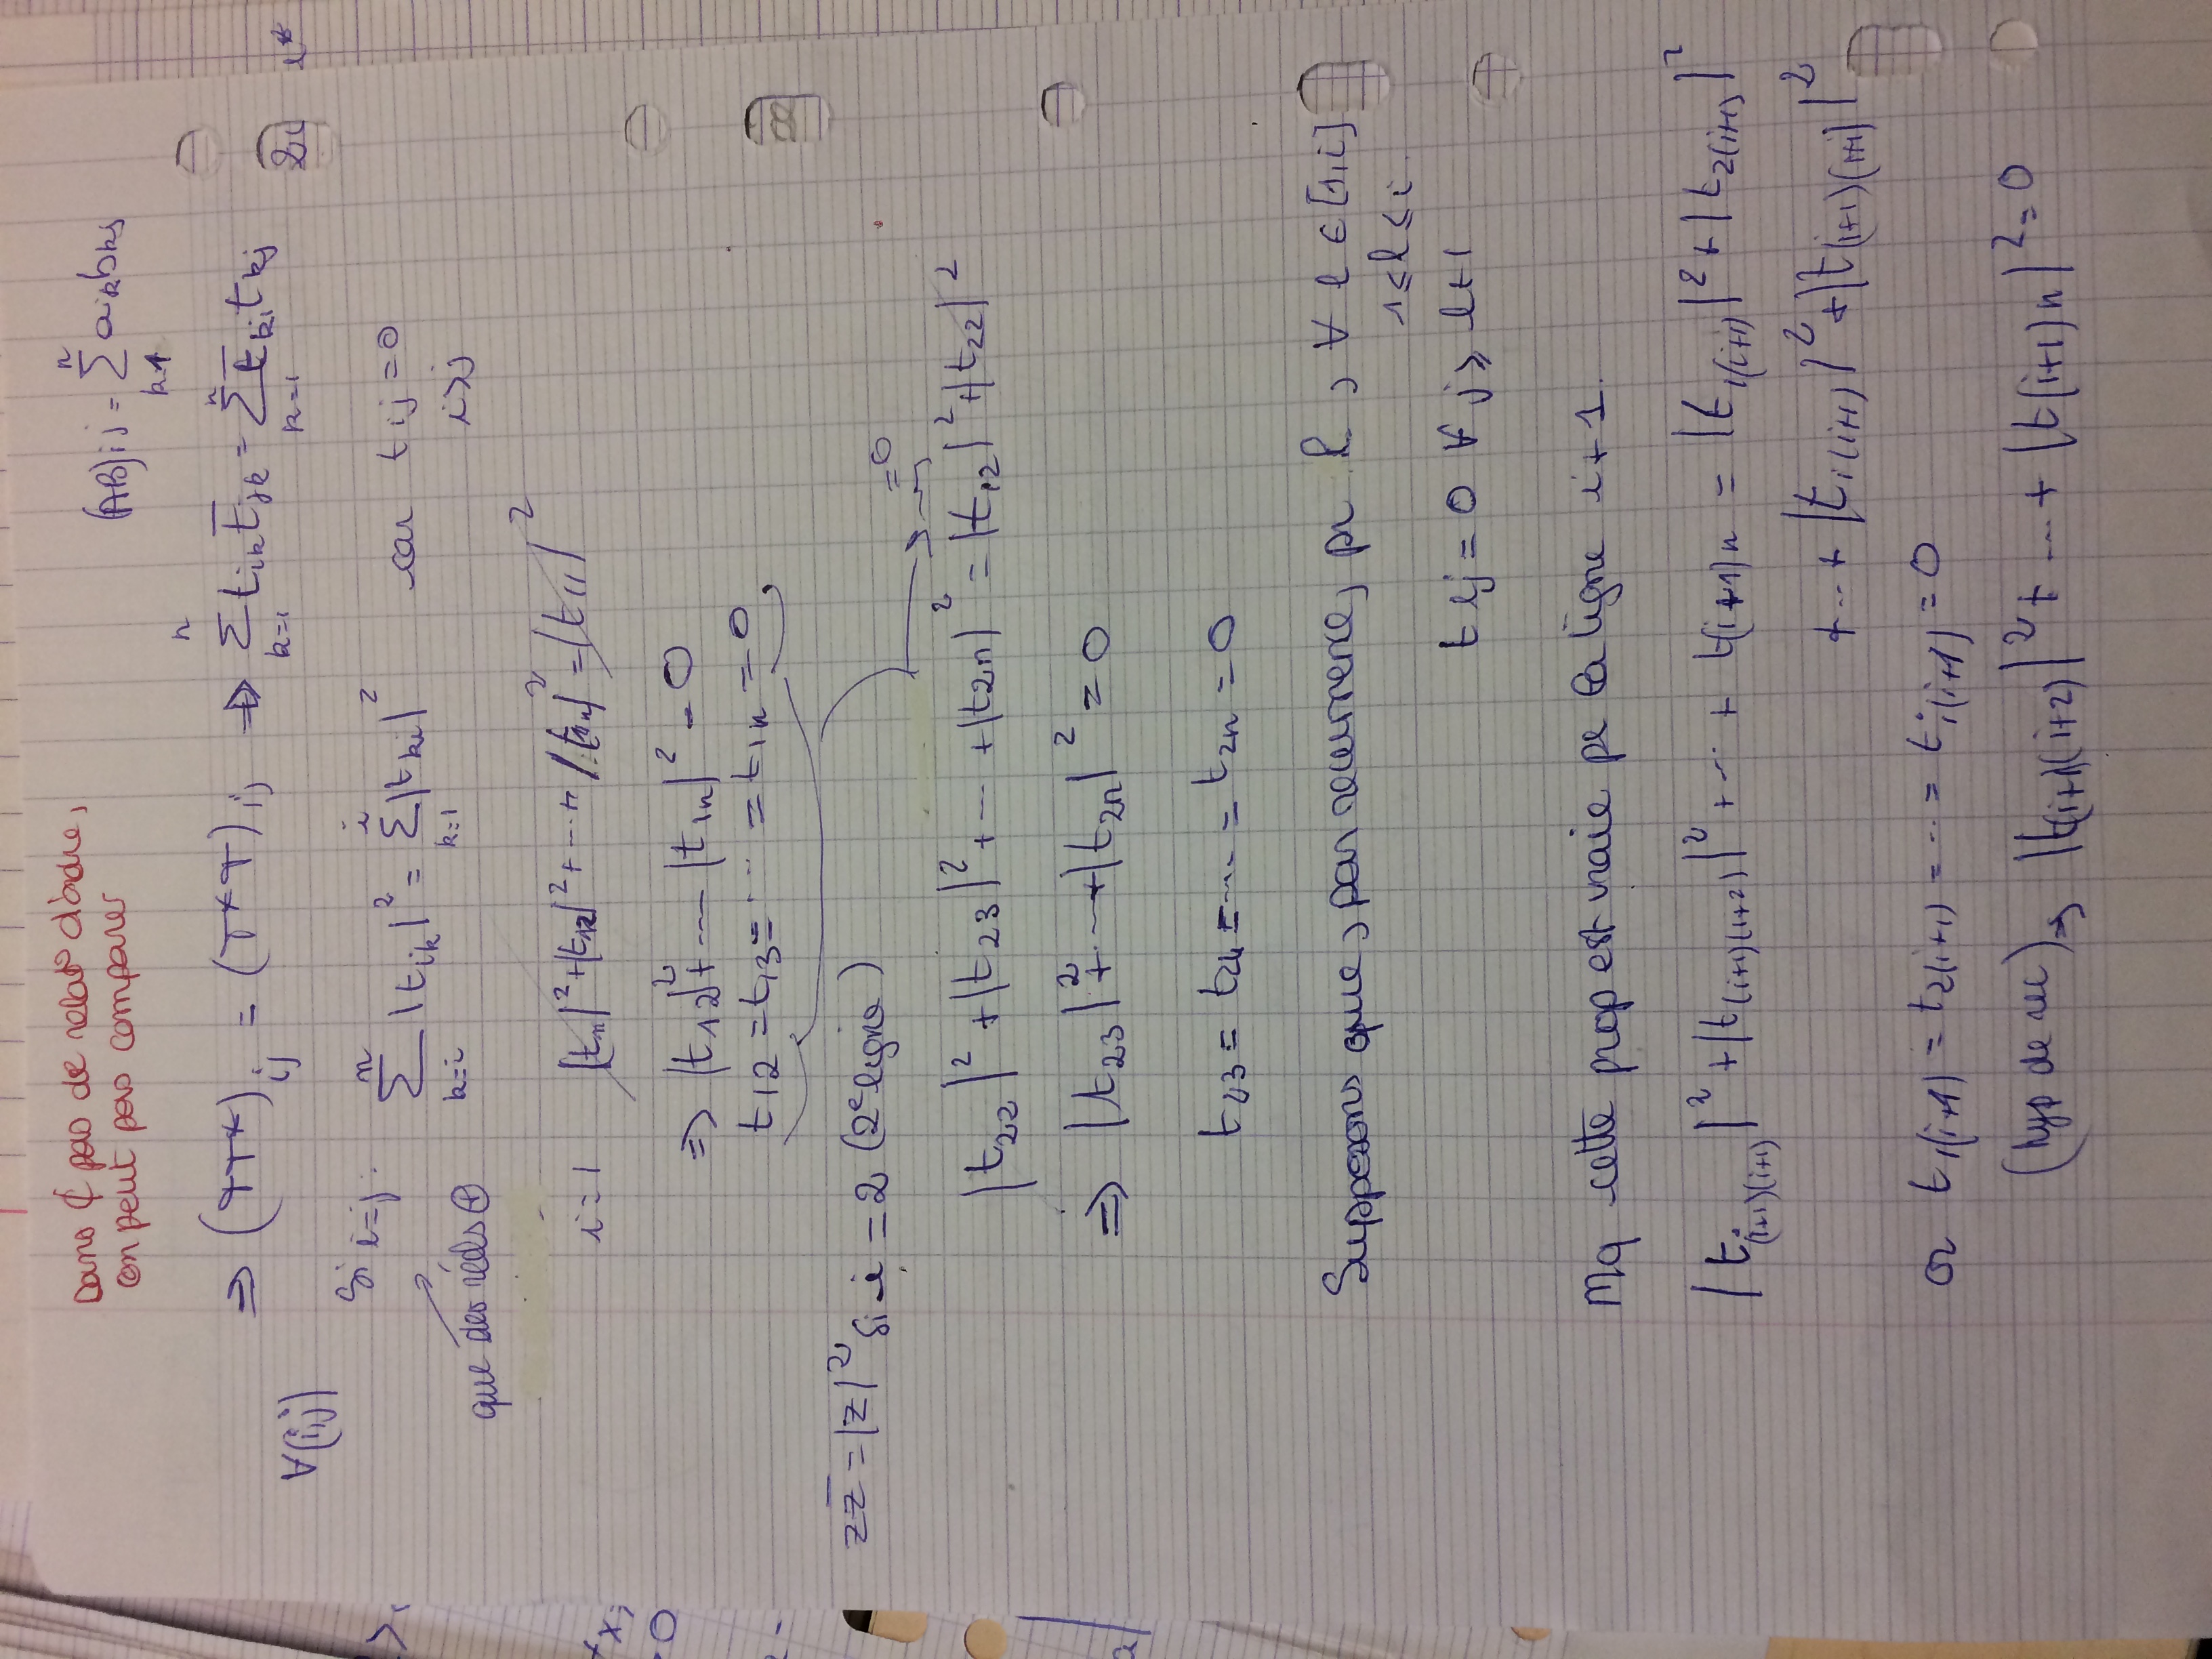 Dans ₵ pas de relat° d'ordre,
on peut pas comparer
(AB)ij = Σ_{k=1}^{n} aik bkj
∀(i,j) ⇒ (TT*)ij = (T*T)ij ⇒ Σ_{k=1}^{n} t_{ik} t̄_{jk} = Σ_{k=1}^{n} t̄_{ki} t_{kj}
Si i=j : Σ_{k=i}^{n} |t_{ik}|² = Σ_{k=1}^{i} |t_{ki}|² car t_{ij} = 0
i>j
que des réels ⊕
i=1 |t_{11}|² + |t_{12}|² + ... + |t_{1n}|² = |t_{11}|²
⇒ |t_{12}|² + --- |t_{1n}|² = 0
t_{12} = t_{13} = ... = t_{1n} = 0
z z̄ = |z|²
Si i = 2 (2e ligne)
=0
|t_{22}|² + |t_{23}|² + ... + |t_{2n}|² = |t_{12}|² + |t_{22}|²
⇒ |t_{23}|² + ... + |t_{2n}|² = 0
t_{23} = t_{24} = ... = t_{2n} = 0
Supposons que, par recurrence, pr l, ∀ l ∈ [1,i]
1 ≤ l ≤ i
t_{lj} = 0 ∀ j ≥ l+1
Mq cette prop est vraie pr la ligne i+1.
|t_{(i+1)(i+1)}|² + |t_{(i+1)(i+2)}|² + ... + t_{(i+1)n} = |t_{1(i+1)}|² + |t_{2(i+1)}|²
+ ... + |t_{i(i+1)}|² + |t_{(i+1)(i+1)}|²
or t_{1(i+1)} = t_{2(i+1)} = ... = t_{i(i+1)} = 0
(hyp de rec) ⇒ |t_{(i+1)(i+2)}|² + ... + |t_{(i+1)n}|² = 0